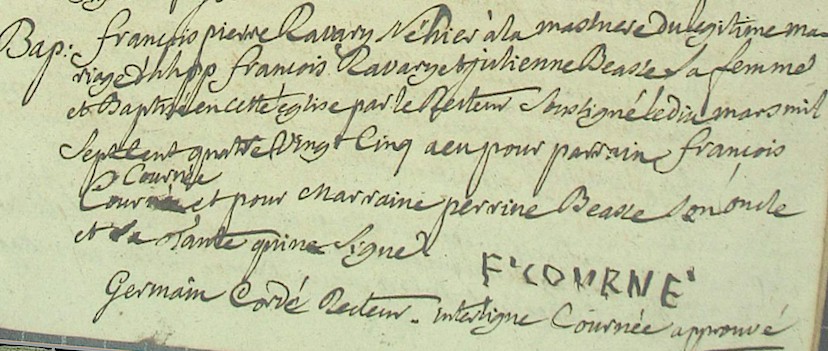 Bap: François pierre Ravary Né hier à la masure du legitime ma-
riage d'h h pp François Ravary et julienne Beasse Sa femme
et Baptisé en cette église par le Recteur Soussigné le dix mars mil
Sept cent quattre Vingt Cinq a eu pour parrain François
Cournée
et pour Marraine perrine Beasse Son oncle
et Sa Tante qui ne Signe
F·COURNÉ
Germain Cordé Recteur. interligne Cournée approuvé